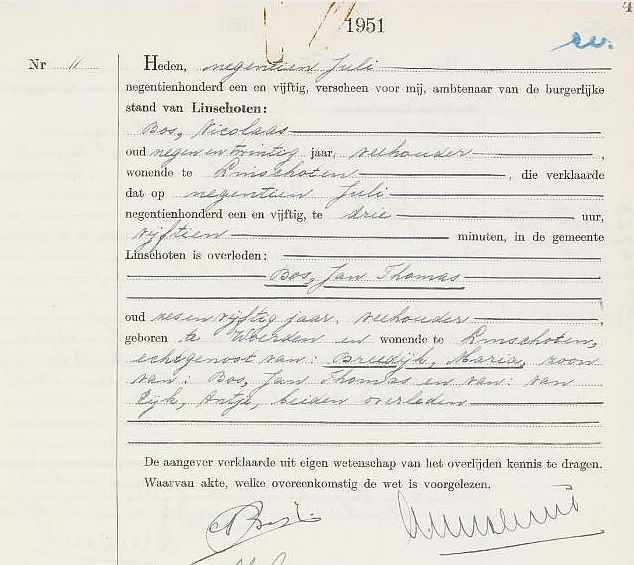 4
1951
ev.
Nr 11
Heden, negentien Juli
negentienhonderd een en vijftig, verscheen voor mij, ambtenaar van de burgerlijke
stand van Linschoten:
Bos, Nicolaas
oud negen en twintig jaar, veehouder ,
wonende te Linschoten , die verklaarde
dat op negentien Juli
negentienhonderd een en vijftig, te drie uur,
vijftien minuten, in de gemeente
Linschoten is overleden:
Bos, Jan Thomas
oud zes en vijftig jaar, veehouder ,
geboren te Woerden en wonende te Linschoten,
echtgenoot van: Breedijk, Maria, zoon
van: Bos, Jan Thomas en van: van
Eijk, Antje, beiden overleden
De aangever verklaarde uit eigen wetenschap van het overlijden kennis te dragen.
Waarvan akte, welke overeenkomstig de wet is voorgelezen.